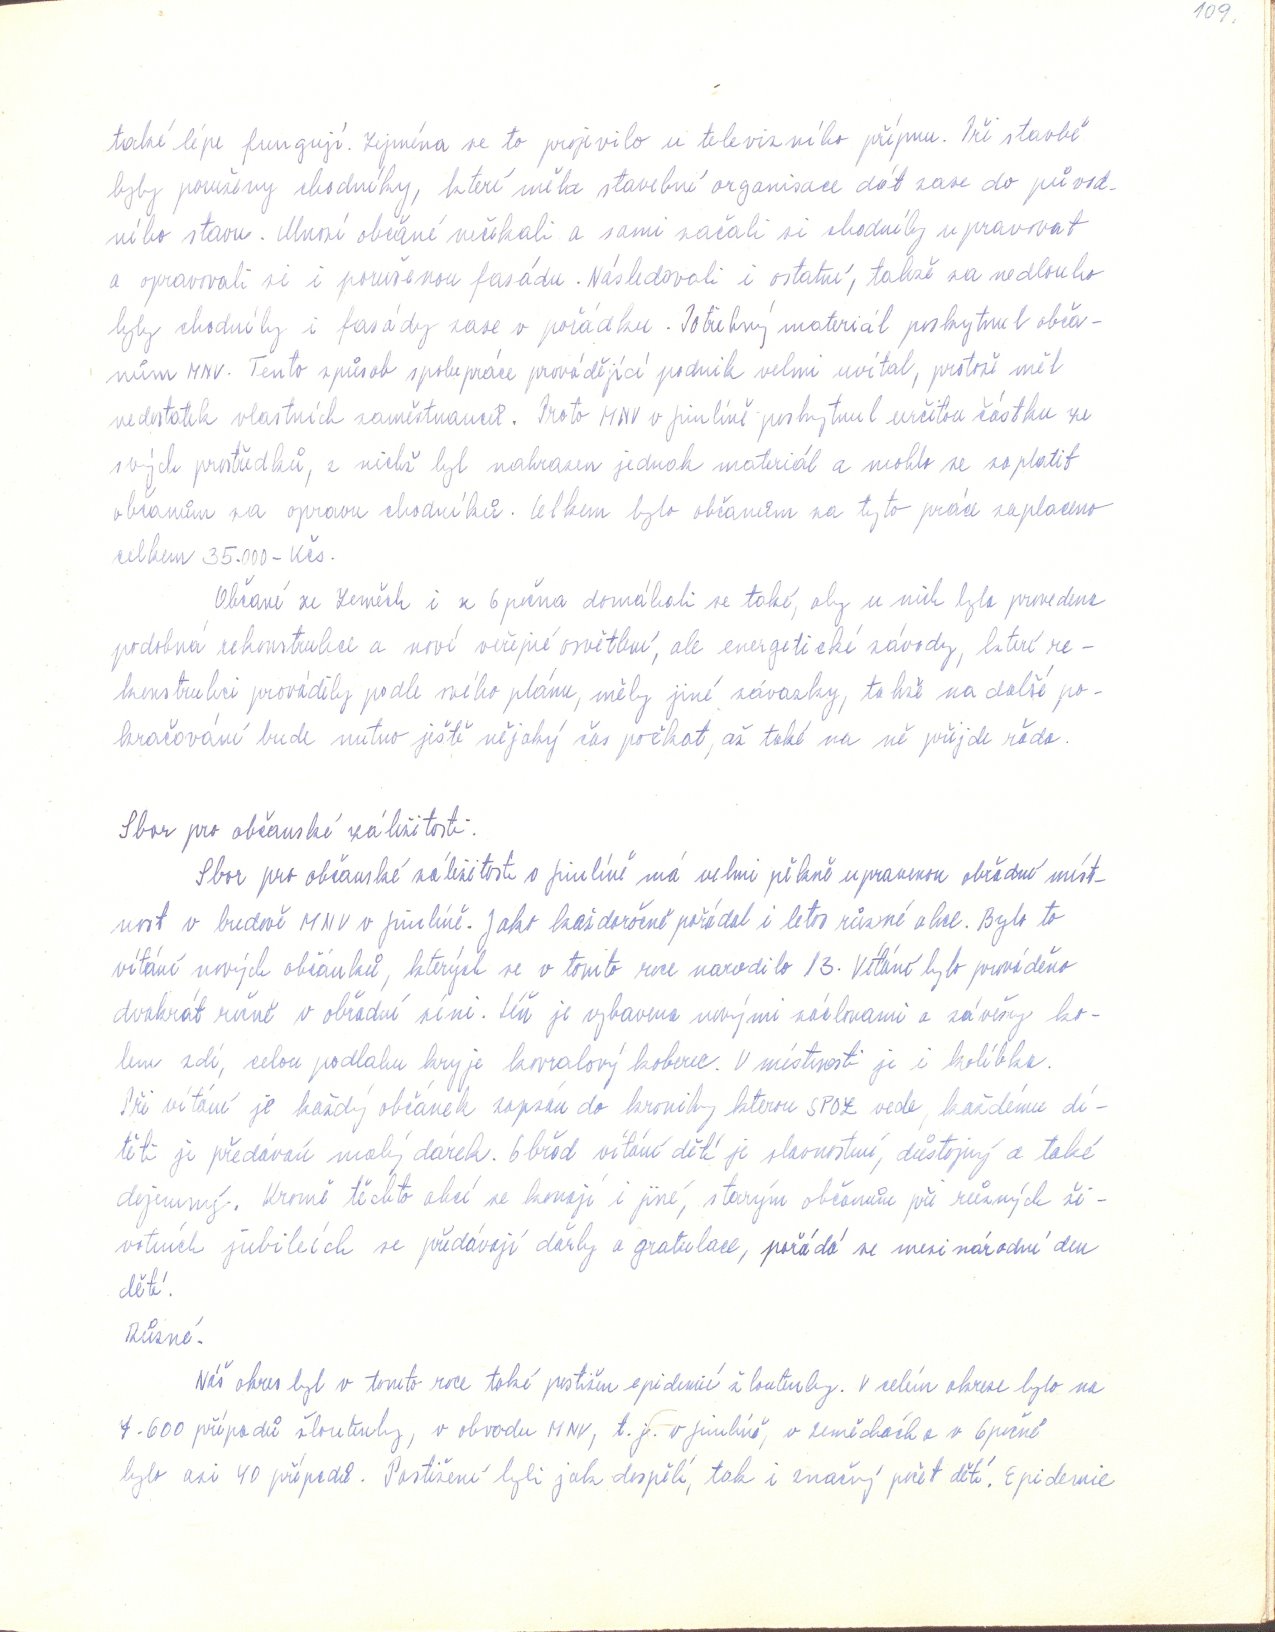 109.
také lépe fungují. Zejména se to projevilo u televizního příjmu. Při stavbě
byly porušeny chodníky, které měla stavební organisace dát zase do původ-
ního stavu. Mnozí občané nečekali a sami začali si chodníky upravovat
a opravovali si i porušenou fasádu. Následovali i ostatní, takže za nedlouho
byly chodníky i fasády zase v pořádku. Potřebný materiál poskytnul obča-
nům MNV. Tento způsob spolupráce provádějící podnik velmi uvítal, protože měl
nedostatek vlastních zaměstnanců. Proto MNV v Jinlíně poskytnul určitou částku ze
svých prostředků, z nichž byl nahrazen jednak materiál a mohlo se zaplatit
občanům za opravu chodníků. Celkem bylo občanům za tyto práce zaplaceno
celkem 35.000-Kčs.
Občané ze Zeměch i z Opečna domáhali se také, aby u nich byla provedena
podobná rekonstrukce a nové veřejné osvětlení, ale energetické závody, které re-
konstrukci prováděly podle svého plánu, měly jiné závazky, takže na další po-
kračování bude nutno ještě nějaký čas počkat, až také na ně přijde řada.
Sbor pro občanské záležitosti.
Sbor pro občanské záležitosti v Jinlíně má velmi pěkně upravenou obřadní míst-
nost v budově MNV v Jinlíně. Jako každoročně pořádal i letos různé akce. Bylo to
vítání nových občánků, kterých se v tomto roce narodilo 13. Vítání bylo prováděno
dvakrát ročně v obřadní síni. Síň je vybavena novými záclonami a závěsy ko-
lem zdí, celou podlahu kryje kovralový koberec. V místnosti je i kolíbka.
Při vítání je každý občánek zapsán do kroniky kterou SPOZ vede, každému dí-
těti je předáván malý dárek. Obřad vítání dětí je slavnostní, důstojný a také
dojemný. Kromě těchto akcí se konají i jiné, starým občanům při různých ži-
votních jubileích se předávají dárky a gratulace, pořádá se mezinárodní den
dětí.
Různé.
Náš okres byl v tomto roce také postižen epidemií žloutenky. V celém okrese bylo na
4.600 případů žloutenky, v obvodu MNV, t.j. v Jinlíně, v Zeměchách a v Opečně
bylo asi 40 případů. Postižení byli jak dospělí, tak i značný počet dětí. Epidemie